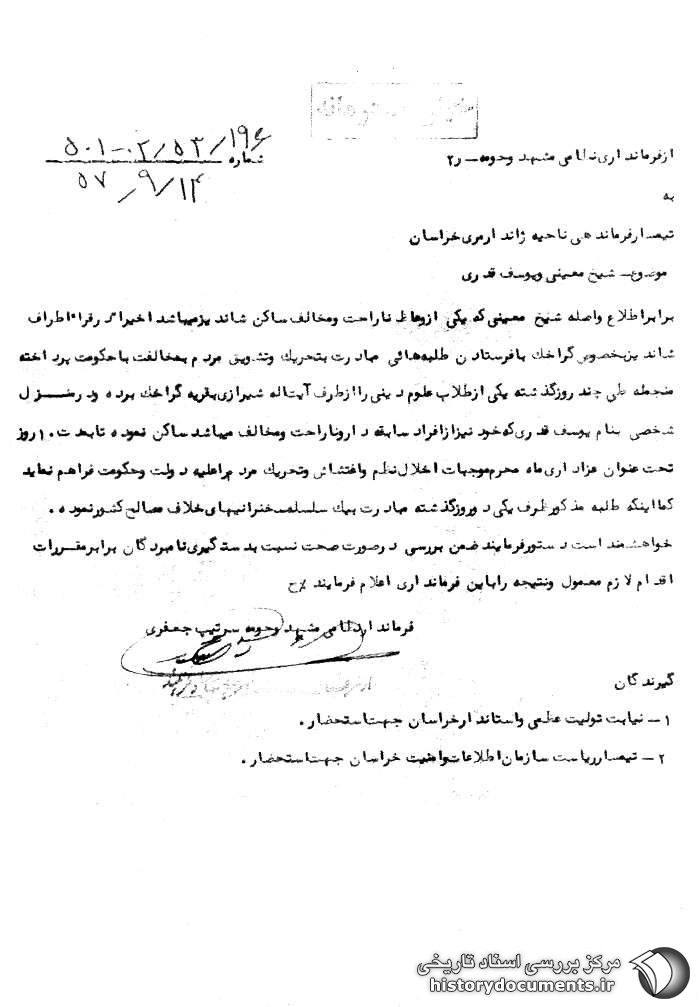 خیلی محرمانه
شماره ۵۰۱-۰۲/۵۳/۱۹۶
۵۷/۹/۱۴
از فرمانداری نظامی مشهد و حومه – ر۲
به
تیمسار فرماندهی ناحیه ژاندارمری خراسان
موضوع – شیخ معینی و یوسف قدری
برابر اطلاع واصله شیخ معینی که یکی از وعاظ ناراحت و مخالف ساکن شاندیز میباشد اخیرا در قراء اطراف
شاندیز بخصوص گراخک با فرستادن طلبه هائی مبادرت بتحریک و تشویق مردم بمخالفت با حکومت پرداخته
منجمله طی چند روز گذشته یکی از طلاب علوم دینی را از طرف آیت اله شیرازی بقریه گراخک برده و در منزل
شخصی بنام یوسف قدری که خود نیز از افراد سابقه دار و ناراحت و مخالف میباشد ساکن نموده تا بمدت ۱۰ روز
تحت عنوان عزاداری ماه محرم موجبات اخلال نظم و اغتشاش و تحریک مردم بر علیه دولت و حکومت فراهم نماید
کما اینکه طلبه مذکور ظرف یکی دو روز گذشته مبادرت بیک سلسله سخنرانیهای خلاف مصالح کشور نموده .
خواهشمند است دستور فرمایند ضمن بررسی در صورت صحت نسبت بدستگیری نامبردگان برابر مقررات
اقدام لازم معمول و نتیجه را باین فرمانداری اعلام فرمایند ٪ح
فرماندار نظامی مشهد و حومه سرتیپ جعفری
گیرندگان
۱ – نیابت تولیت عظمی و استاندار خراسان جهت استحضار .
۲ – تیمسار ریاست سازمان اطلاعات و امنیت خراسان جهت استحضار .
مرکز بررسی اسناد تاریخی
historydocuments.ir